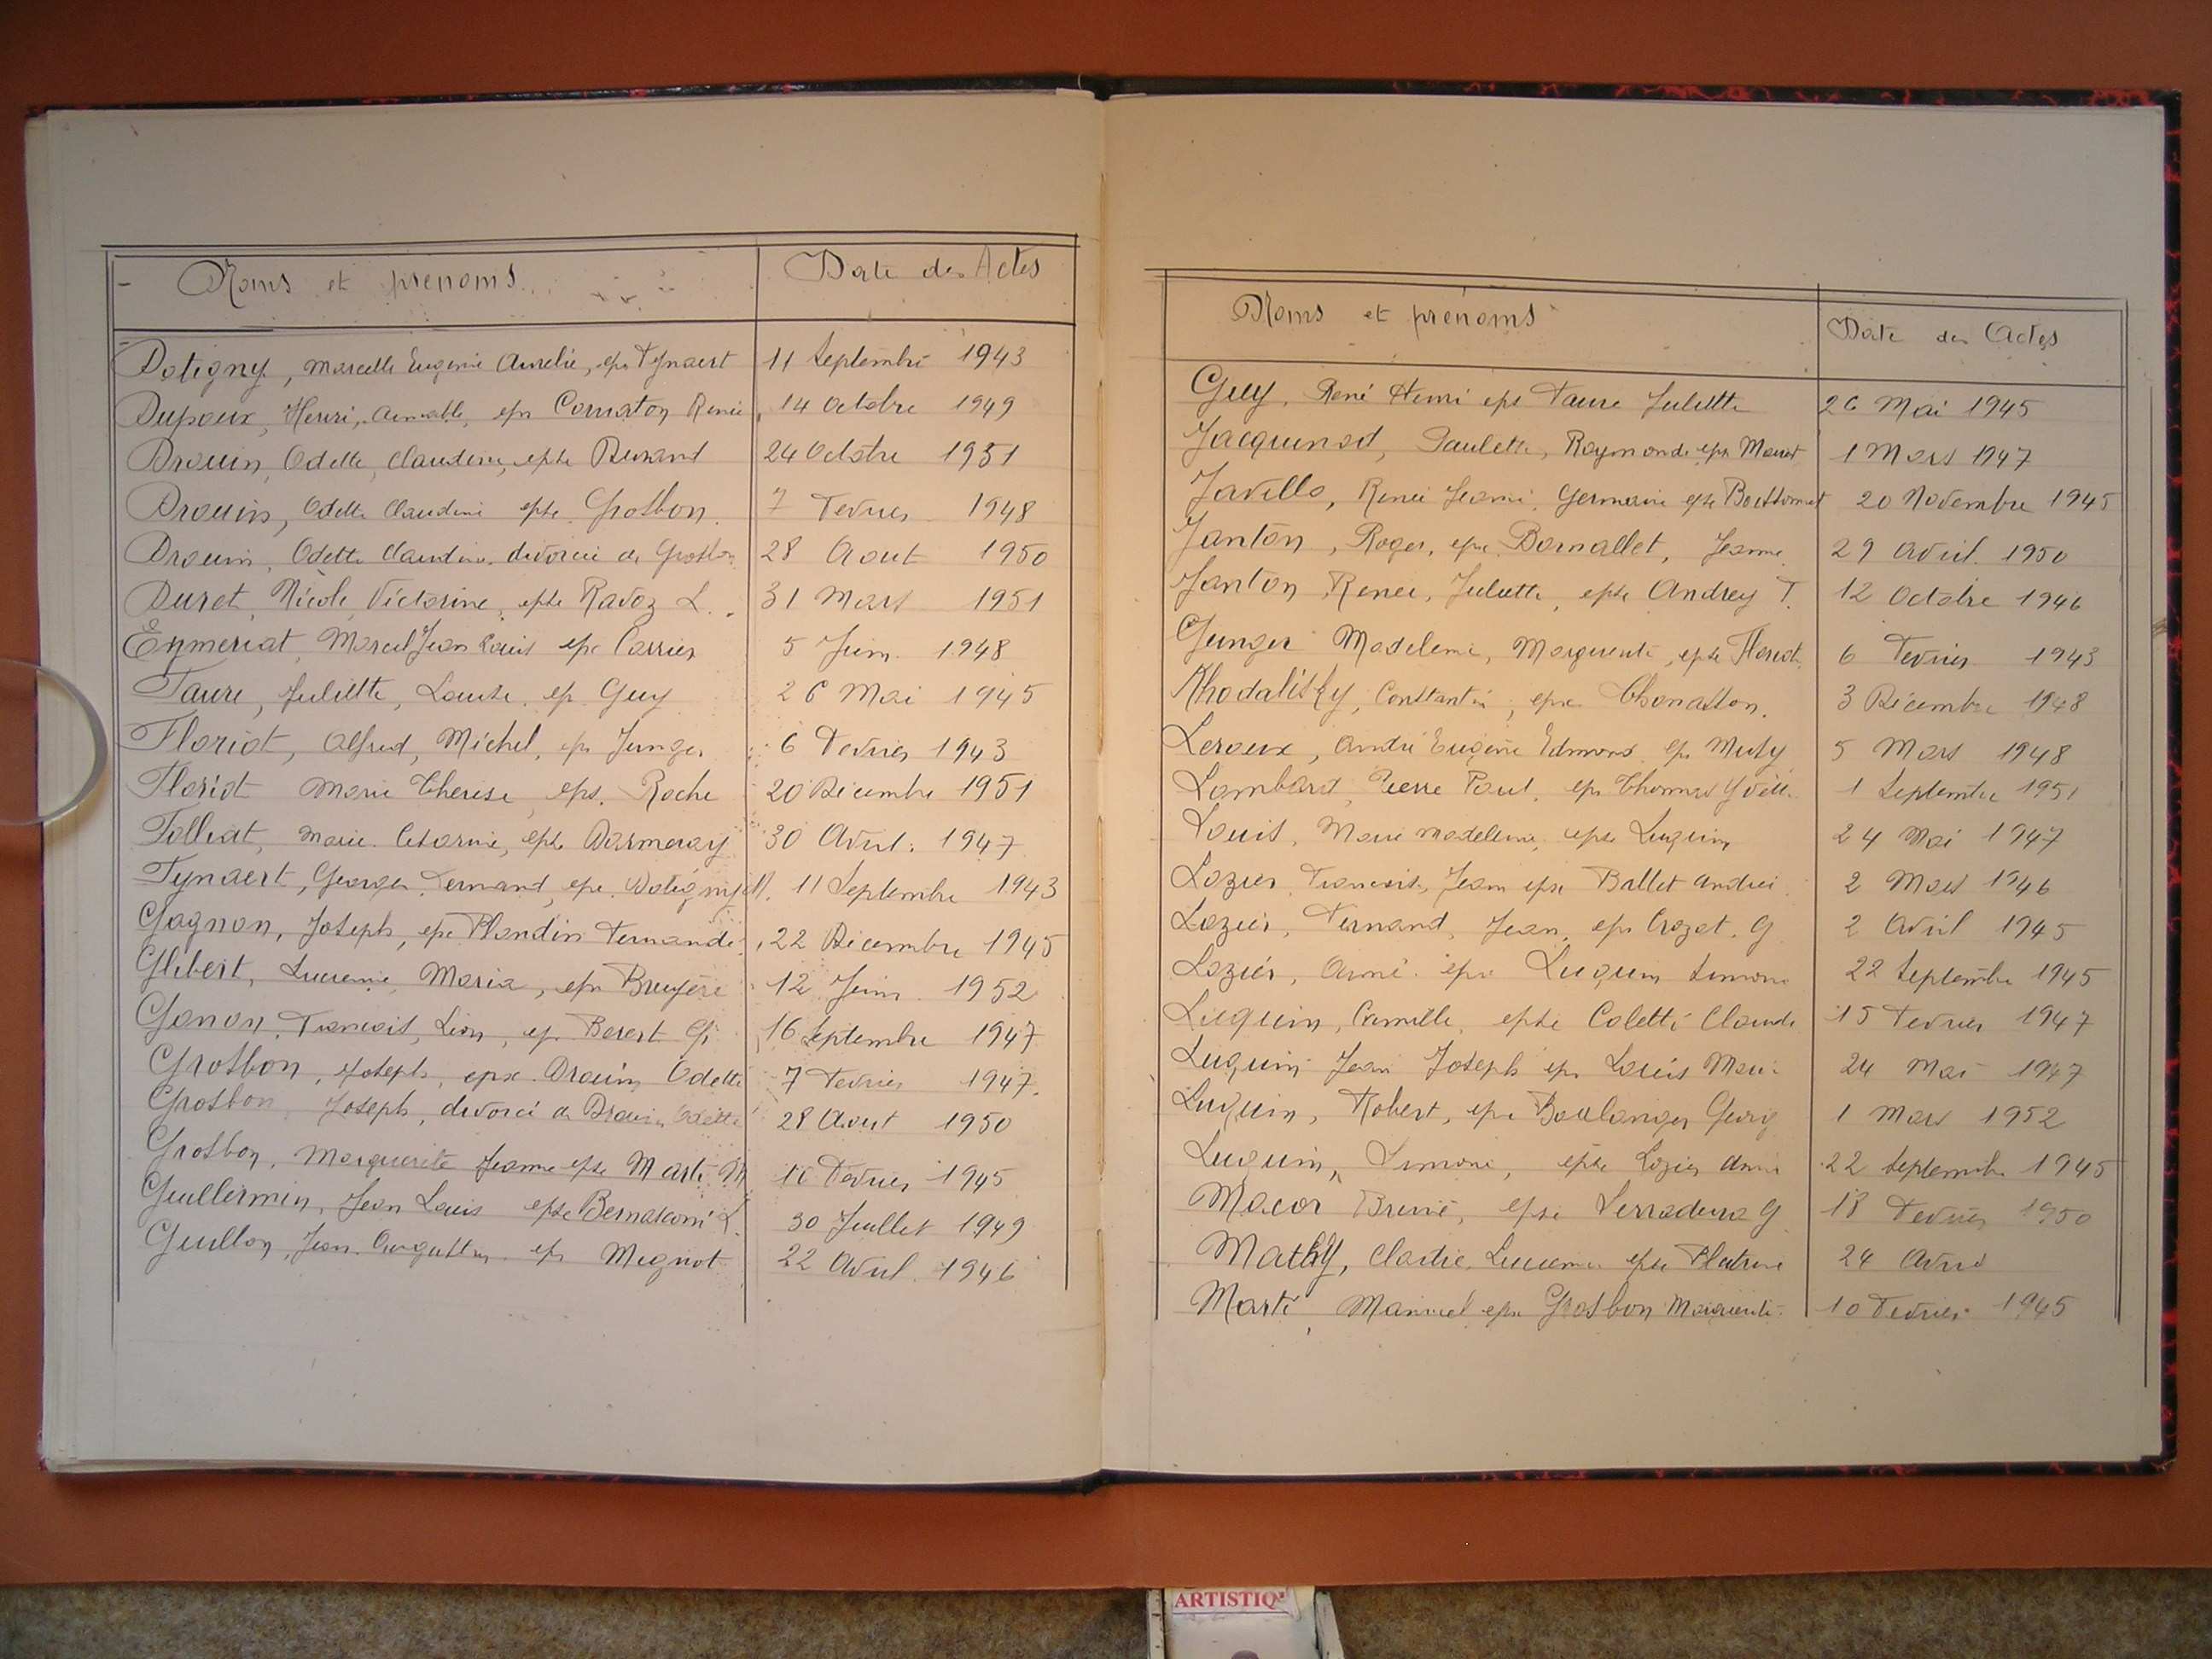 Noms et prenoms Date des Actes
Dotigny, Marcelle Eugenie Aurelie, epx Tynaert 11 Septembre 1943
Dupoux, Henri, Aimable, epx Comaton Renée 14 Octobre 1949
Drouin, Odette, Claudine, epse Durand 24 Octobre 1951
Drouin, Odette Claudine epse Grosbon. 7 Fevrier 1948
Drouin, Odette Claudine divorcée de Grosbon 28 Aout 1950
Duret, Nicole Victorine, epse Ravoz L. 31 Mars 1951
Enmeriat, Marcel Jean Louis epx Carrier 5 Juin 1948
Faure, Juliette, Louise ep. Guy 26 Mai 1945
Floriot, Alfred, Michel, epx Junger 6 Fevrier 1943
Floriot Marie Therese eps. Roche 20 Décembre 1951
Folliat, Marie Cesarine, epse Darmeray 30 Avril 1947
Tynaert, Georges Fernand, epx Dotigny M. 11 Septembre 1943
Gagnon, Joseph, epx Blondin Fernande 22 Décembre 1945
Glibert, Lucienne Maria, epse Bruyère 12 Juin 1952
Gonon, Francois, Léon, ep. Berert G. 16 Septembre 1947
Grosbon, Joseph, epx Drouin Odette 7 Fevrier 1947.
Grosbon, Joseph, divorcé de Drouin Odette 28 Aout 1950
Grosbon, Marguerite Jeanne epse Marti M 10 Fevrier 1945
Guillermin, Jean Louis epx Bernasconi L. 30 Juillet 1949
Guillon, Jean Augustin epx Mignot 22 Avril 1946
Noms et prénoms Date des Actes
Guy, René Henri epx Faure Juliette 26 Mai 1945
Jacquinod, Paulette, Raymonde epse 1 Mars 1947
Javillo, Renée Jeanne, Germaine epse 20 Novembre 1945
Janton, Roger, epx Bornallet, Jeanne 29 Avril 1950
Janton, Renée, Juliette, epse Andrey T. 12 Octobre 1946
Junger Madeleine, Marguerite, epse Floriot 6 Fevrier 1943
Khodalitzky, Constantin, epx Chonasson. 3 Décembre 1948
Leroux, André Eugène Edmond epx Muty 5 Mars 1948
Lombard, Pierre Paul, epx Thomas Yvette 1 Septembre 1951
Louis, Marie Madeleine, epse Luquin 24 Mai 1947
Lozier, Francois, Jean epx Ballet Andrée 2 Mars 1946
Lozier, Fernand, Jean, epx Crozet. G 2 Avril 1945
Lozier, Aimé epx Luquin Simone 22 Septembre 1945
Luquin, Camille, epse Coletti Claude 15 Fevrier 1947
Luquin Jean Joseph epx Louis Marie 24 Mai 1947
Luquin, Robert, epx Boulanger Georg 1 Mars 1952
Luquin, Simone, epse Lozier Aimé 22 Septembre 1945
Macor Brunie, epse Serradura G 18 Fevrier 1950
Mathy, Clarisse Lucienne epse 24 Avril
Marti Manuel epx Grosbon Marguerite 10 Fevrier 1945
ARTISTIQ